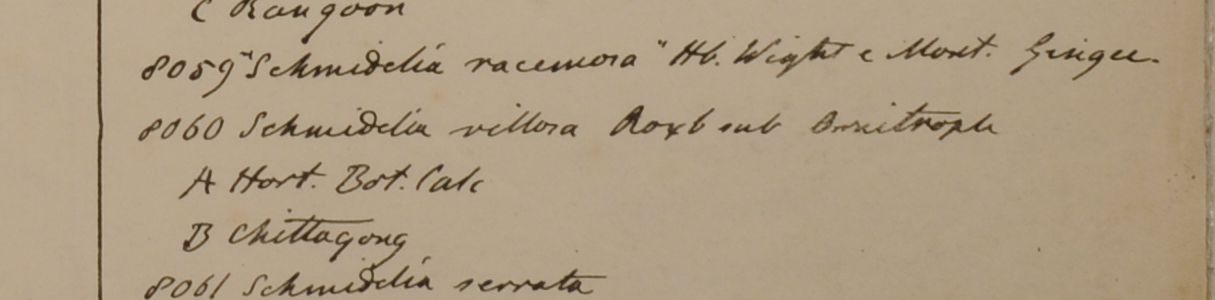 C Rangoon
8059 "Schmidelia racemosa" Hb. Wight e Mont. Gingee.
8060 Schmidelia villosa Roxb sub Ornitroph
A Hort. Bot. Calc
B Chittagong
8061 Schmidelia serrata